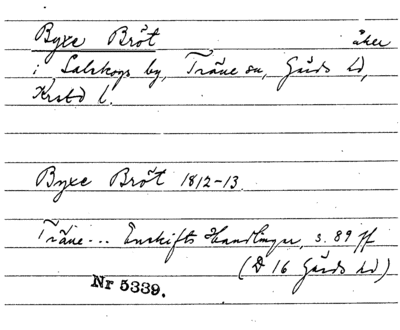 Byxe Bröt åker
i Lalskogs by, Träne sn, Gärds hd,
Krstd l.
Byxe Bröt 1812-13
Träne... Enskifts Handlingar, s. 89 ff
(D 16 Gärds hd)
Nr 5339.